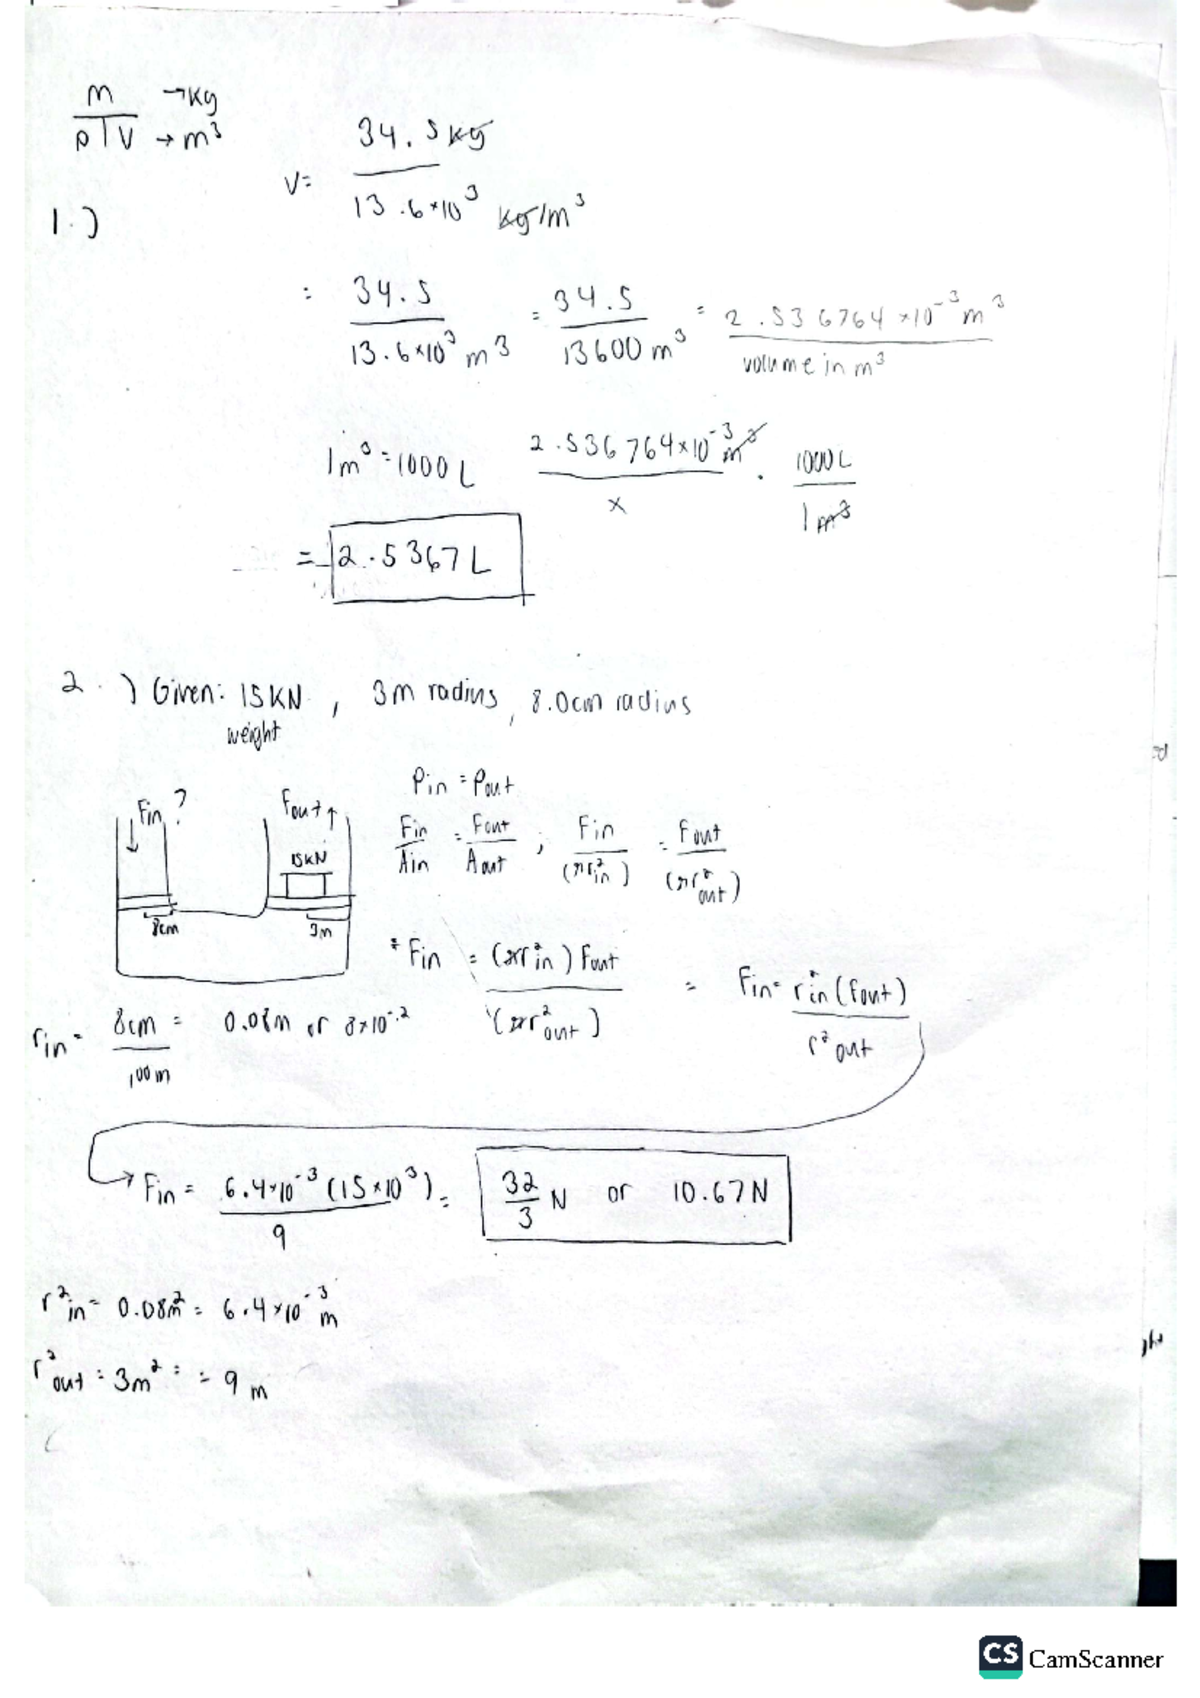 m →kg
ρ | V → m³
1.)
V= 34.5 kg / 13.6×10³ kg/m³
= 34.5 / 13.6×10³ m³ = 34.5 / 13600 m³ = 2.536764×10⁻³ m³
volume in m³
1m³ = 1000 L 2.536764×10⁻³ m³ / x · 1000L / 1m³
= 2.5367 L
2.) Given: 15KN, 3m radius, 8.0cm radius
weight
Fin? Fout↑
15KN
8cm 3m
Pin = Pout
Fin / Ain = Fout / Aout ; Fin / (πr²in) = Fout / (πr²out)
* Fin = (πr²in) Fout / (πr²out) = Fin = r²in (Fout) / r²out
rin = 8cm / 100m = 0.08m or 8×10⁻²
Fin = 6.4×10⁻³ (15×10³) / 9 = 32/3 N or 10.67N
r²in = 0.08m² = 6.4×10⁻³ m
r²out = 3m² = = 9 m
CS CamScanner